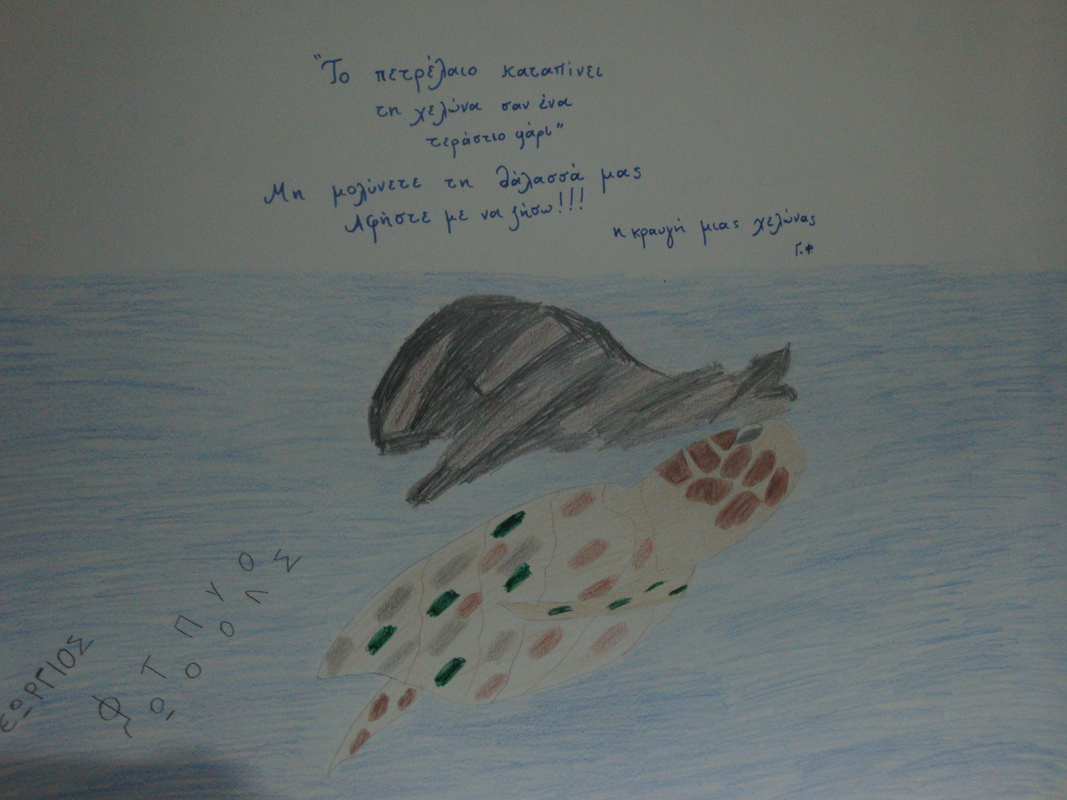 "Το πετρέλαιο καταπίνει
τη χελώνα σαν ένα
τεράστιο ψάρι"
Μη μολύνετε τη θάλασσά μας
Αφήστε με να ζήσω!!!
η κραυγή μιας χελώνας
Γ.Φ
ΕΩΡΓΙΟΣ
ΦΩΤΟΠΟΥΛΟΣ